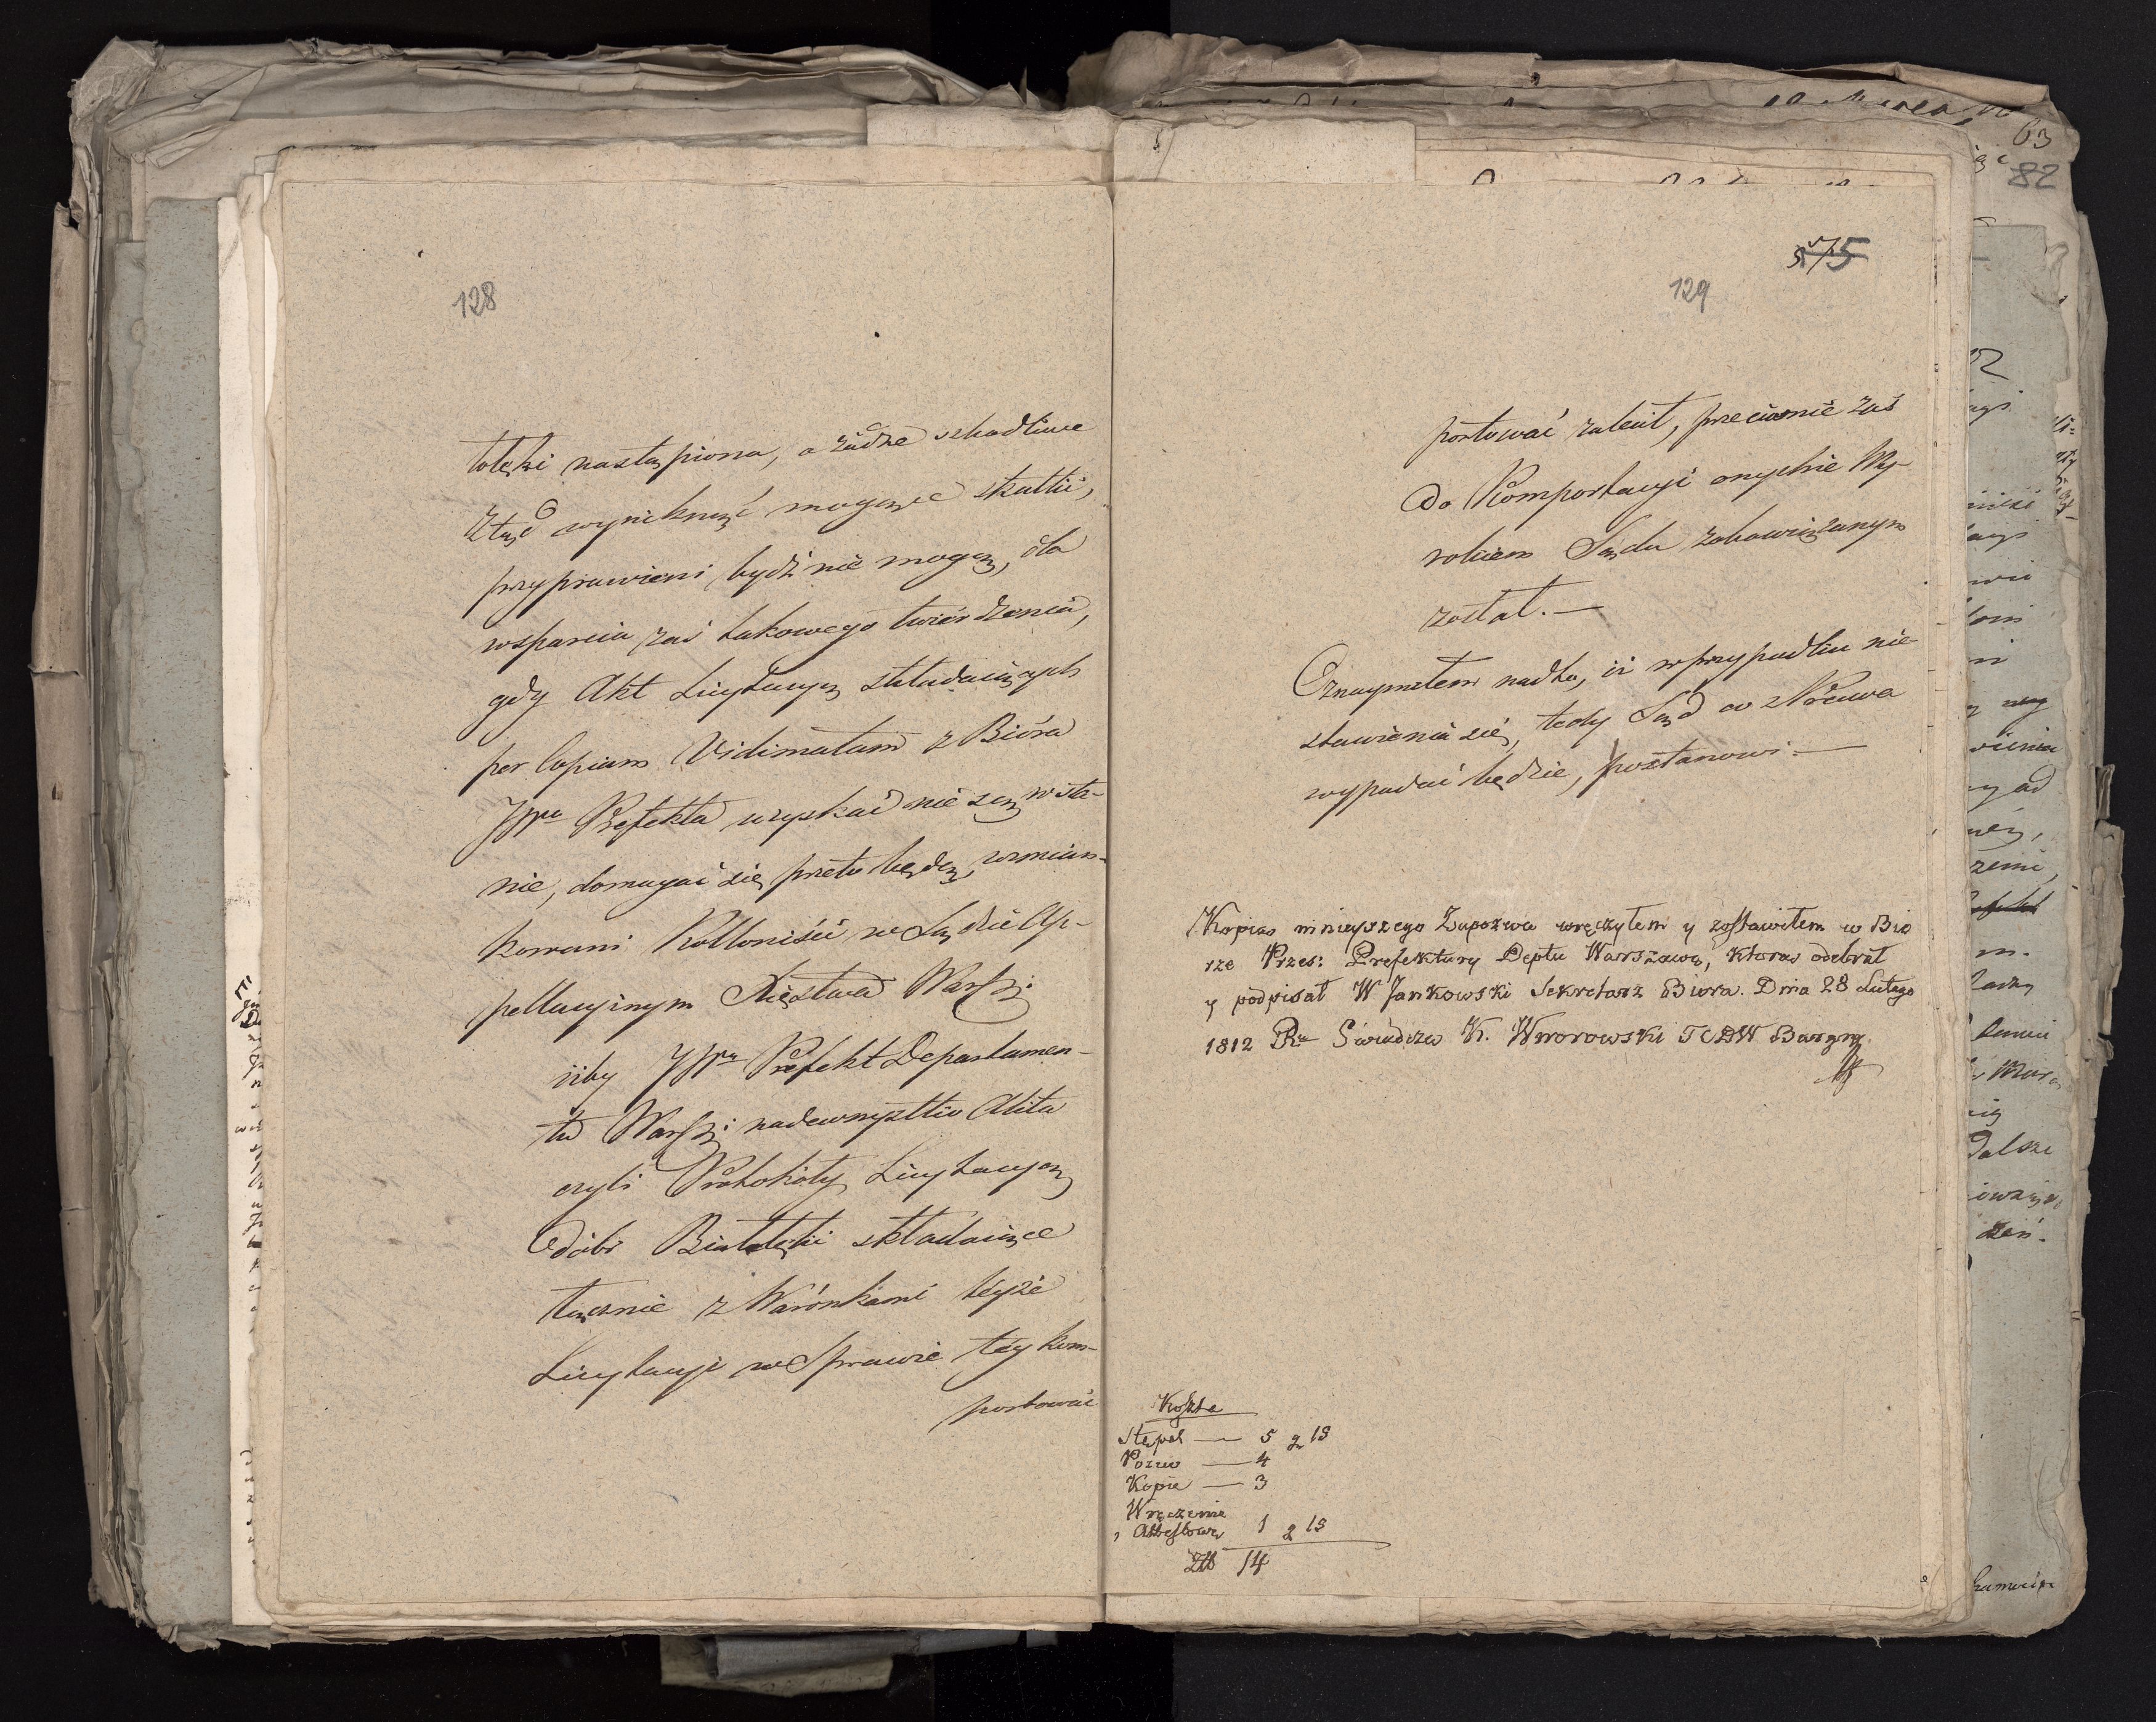 128
tolęki nastąpiona, a żadne szkodliwe
ztąd wyniknąć mogące skutki,
przyprawieni bydź nie mogą, dla
wsparcia zaś takowego twierdzenia,
gdy Akt Licytacyą składaiących
per Copiam Vidimatam z Bióra
JWo Prefekta uzyskać nie są w sta-
nie, domagać się przeto będą, wzmian-
kowani Kolloniści w Sądzie Ap-
pellacyinym Xięstwa Warszi
iżby JWn Prefekt Departamen-
tu Warszi nadewszystko Akta
czyli Protokóły Licytacyą
dóbr Białołęki składaiące
łącznie z Warónkami téyże
Licytacyi w Sprawie téy kom-
portować
575
129
portować zalecił, przeciwnie zaś
do Komportacyi onychże Wy-
rokiem Sądu zobowiązanym
został. —
Oznaymiłem nadto, iż w przypadku nie
stawienia się, tedy Sąd co z Prawa
wypadać będzie, postanowi. —
Kopias ninieyszego Zapozwu wręczyłem y zostawiłem w Bio
rze Przes: Prefektury Deptu Warszaws, ktoras odebrał
y podpisał W Jankowski Sekretarz Biora. Dnia 28 Lutego
1812 Ru Swiadczes K. Wworowski TCDW
Koszta
Stępel — 5 g 15
Pozew — 4
Kopie — 3
Wręczenie
, Attestowe 1 g 15
Złł 14
63
82